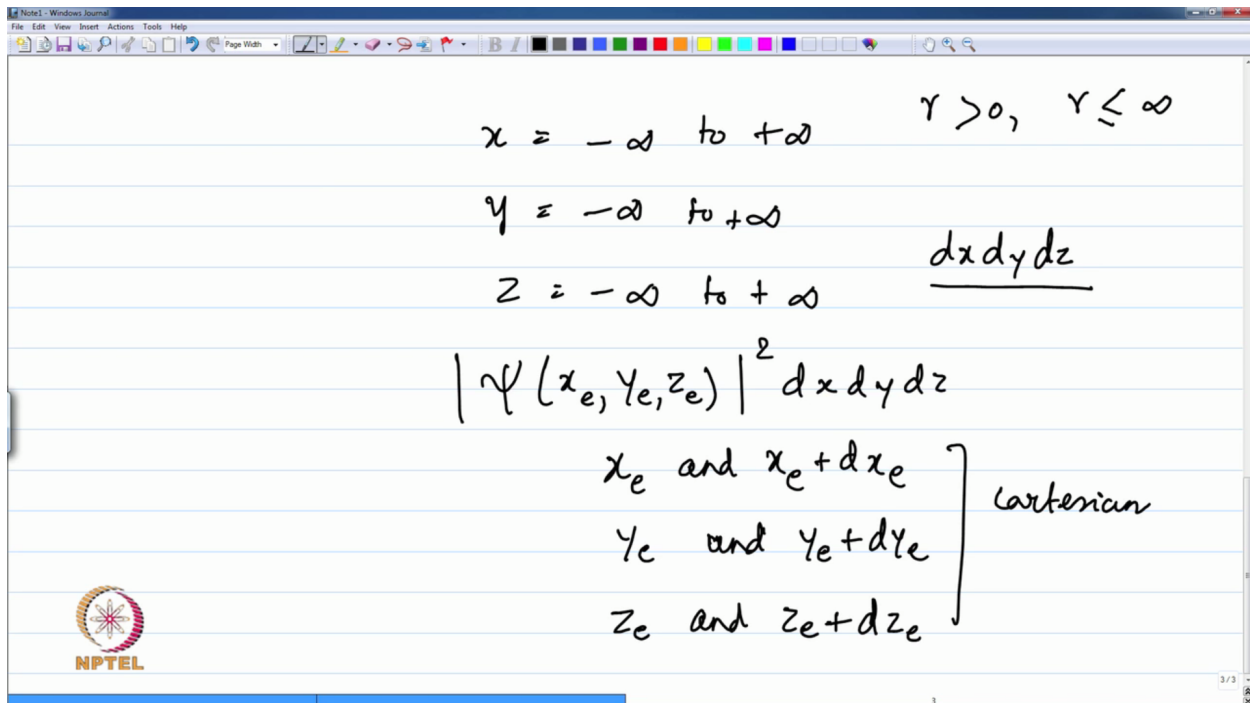 Note1 - Windows Journal
File Edit View Insert Actions Tools Help
Page Width B I
r > 0, r ≤ ∞
x = - ∞ to + ∞
y = - ∞ to + ∞
dx dy dz
z = - ∞ to + ∞
|ψ(xₑ, yₑ, zₑ)|² dx dy dz
xₑ and xₑ + dxₑ
Cartesian
yₑ and yₑ + dyₑ
zₑ and zₑ + dzₑ
NPTEL
3/3
3